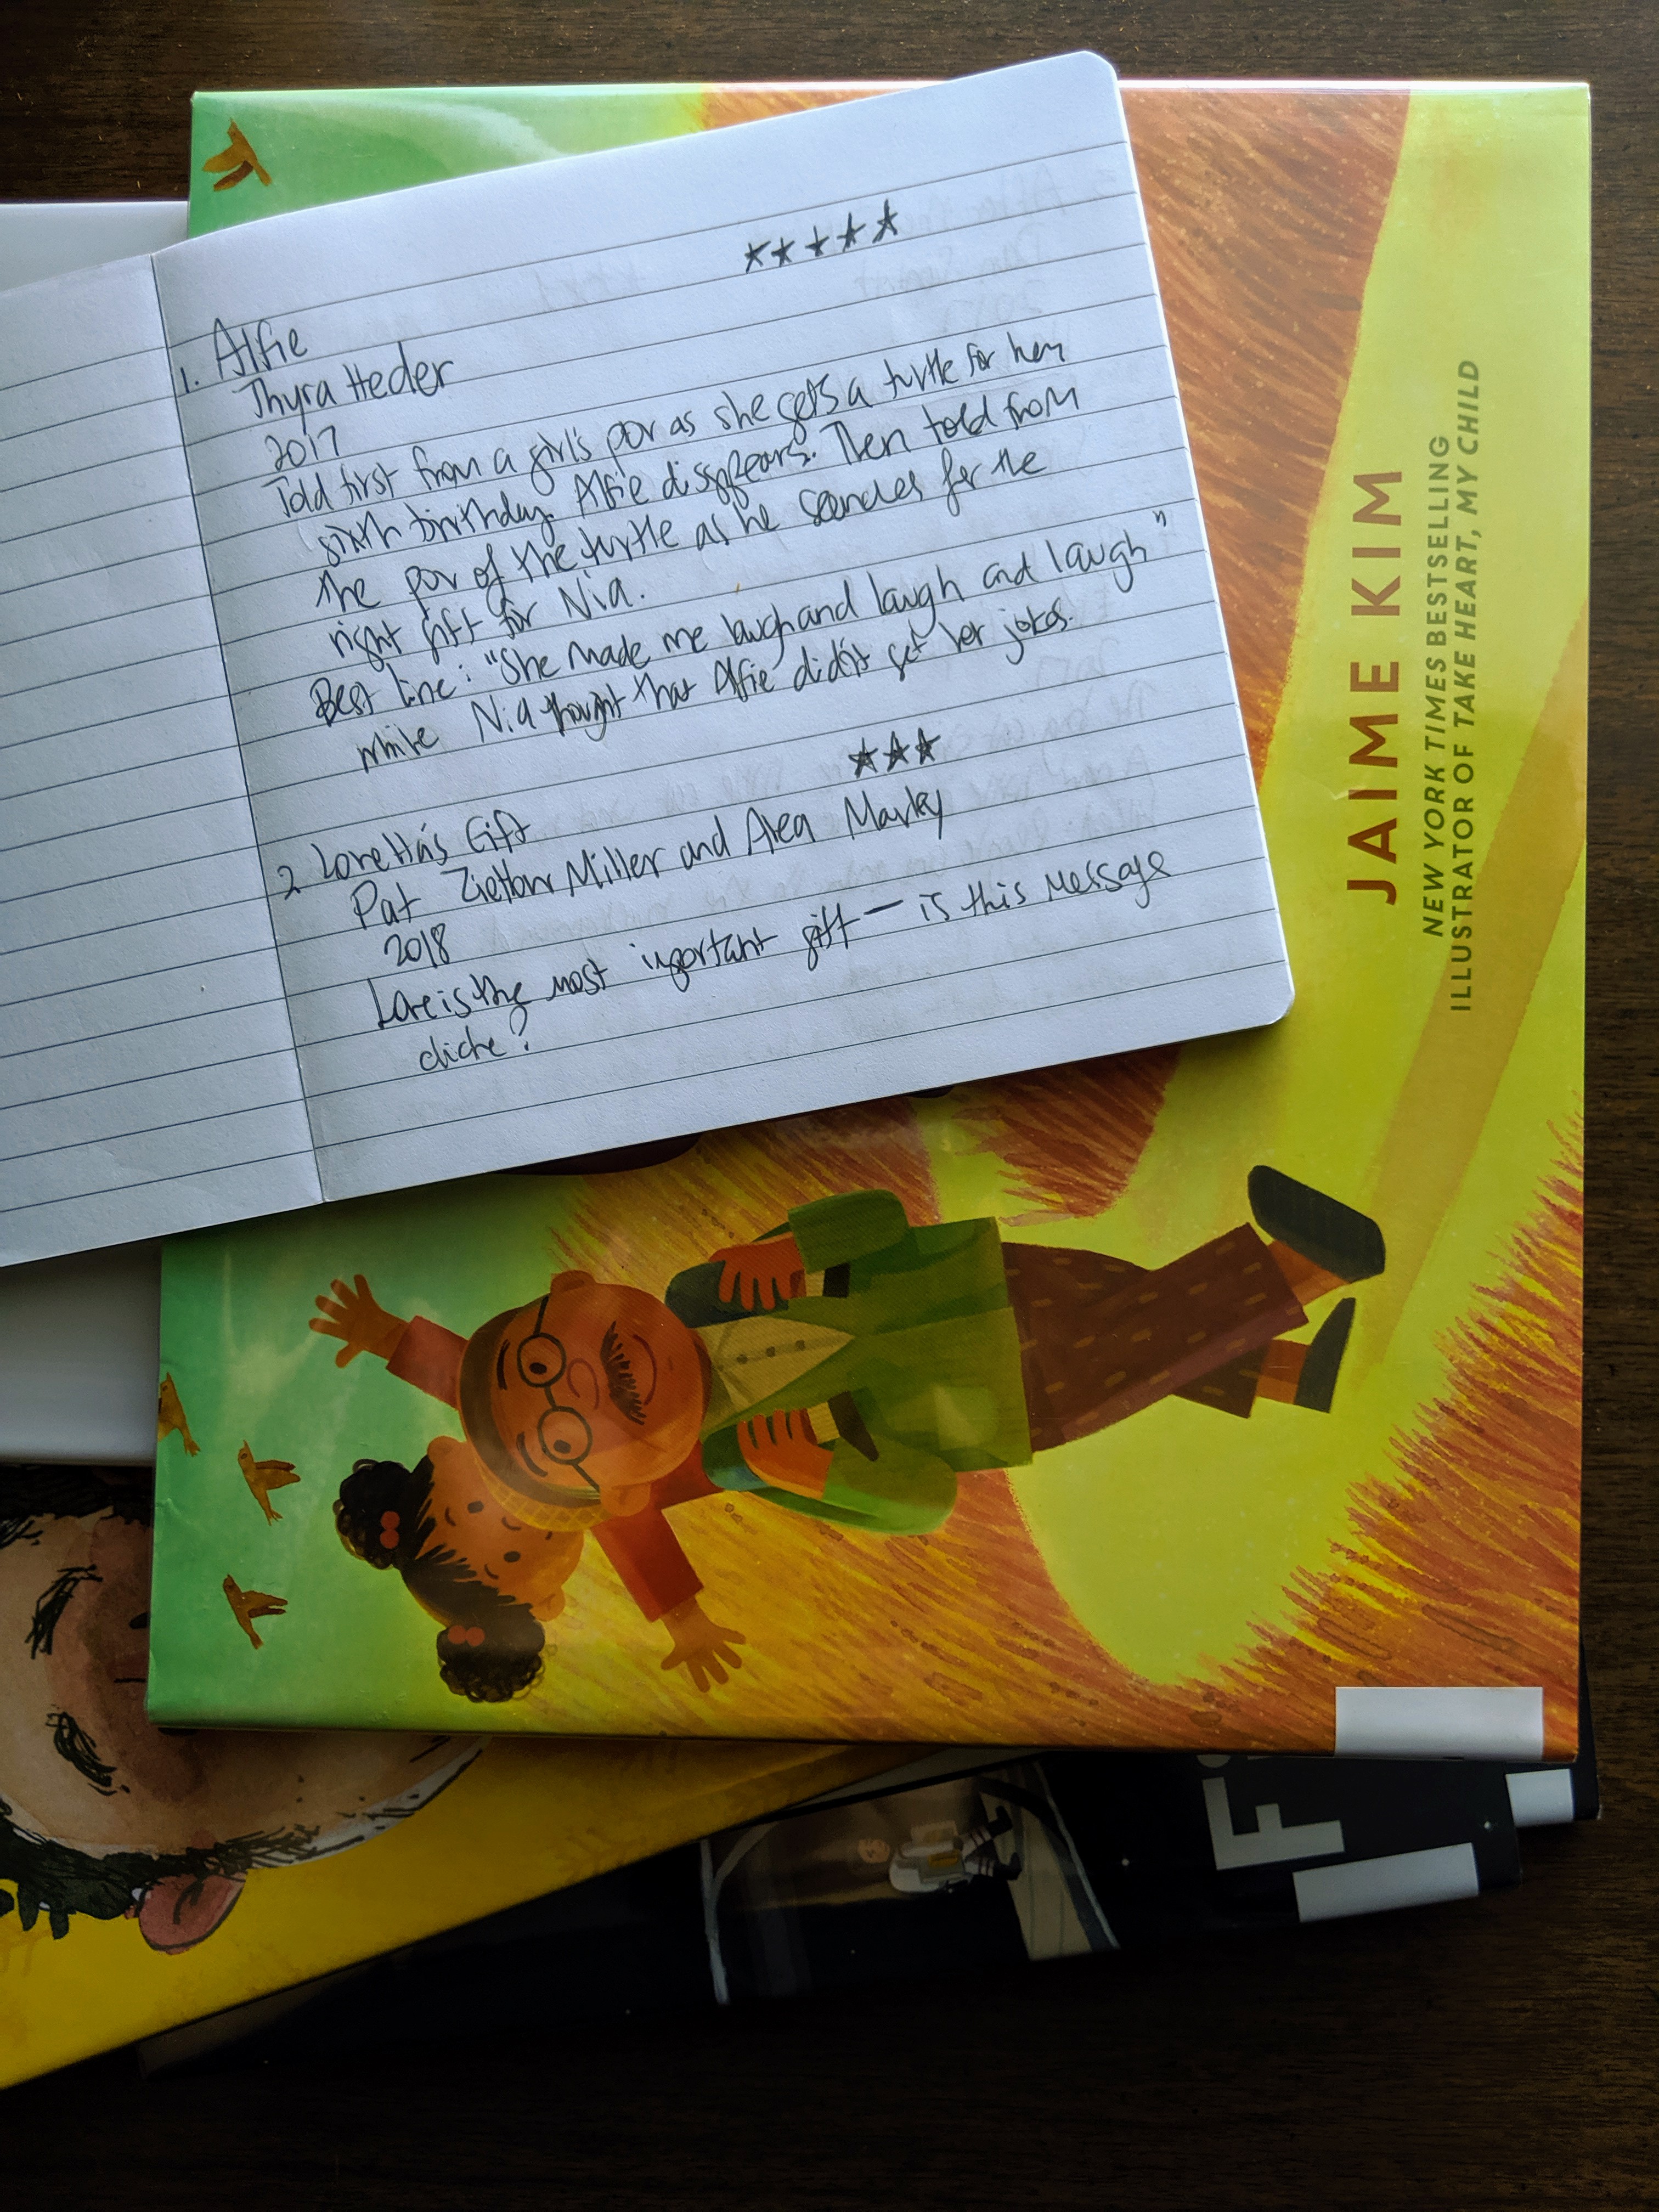 ★★★★★
1. Alfie
Thyra Heder
2017
Told first from a girl's pov as she gets a turtle for her
sixth birthday. Alfie disappears. Then told from
the pov of the turtle as he searches for the
right gift for Nia.
Best line: "She made me laugh and laugh and laugh"
while Nia thought that Alfie didn't get her jokes.
★★★
2 Loretta's Gift
Pat Zietlow Miller and Alea Marley
2018
Love is the most important gift — is this message
cliche?
JAIME KIM
NEW YORK TIMES BESTSELLING
ILLUSTRATOR OF TAKE HEART, MY CHILD